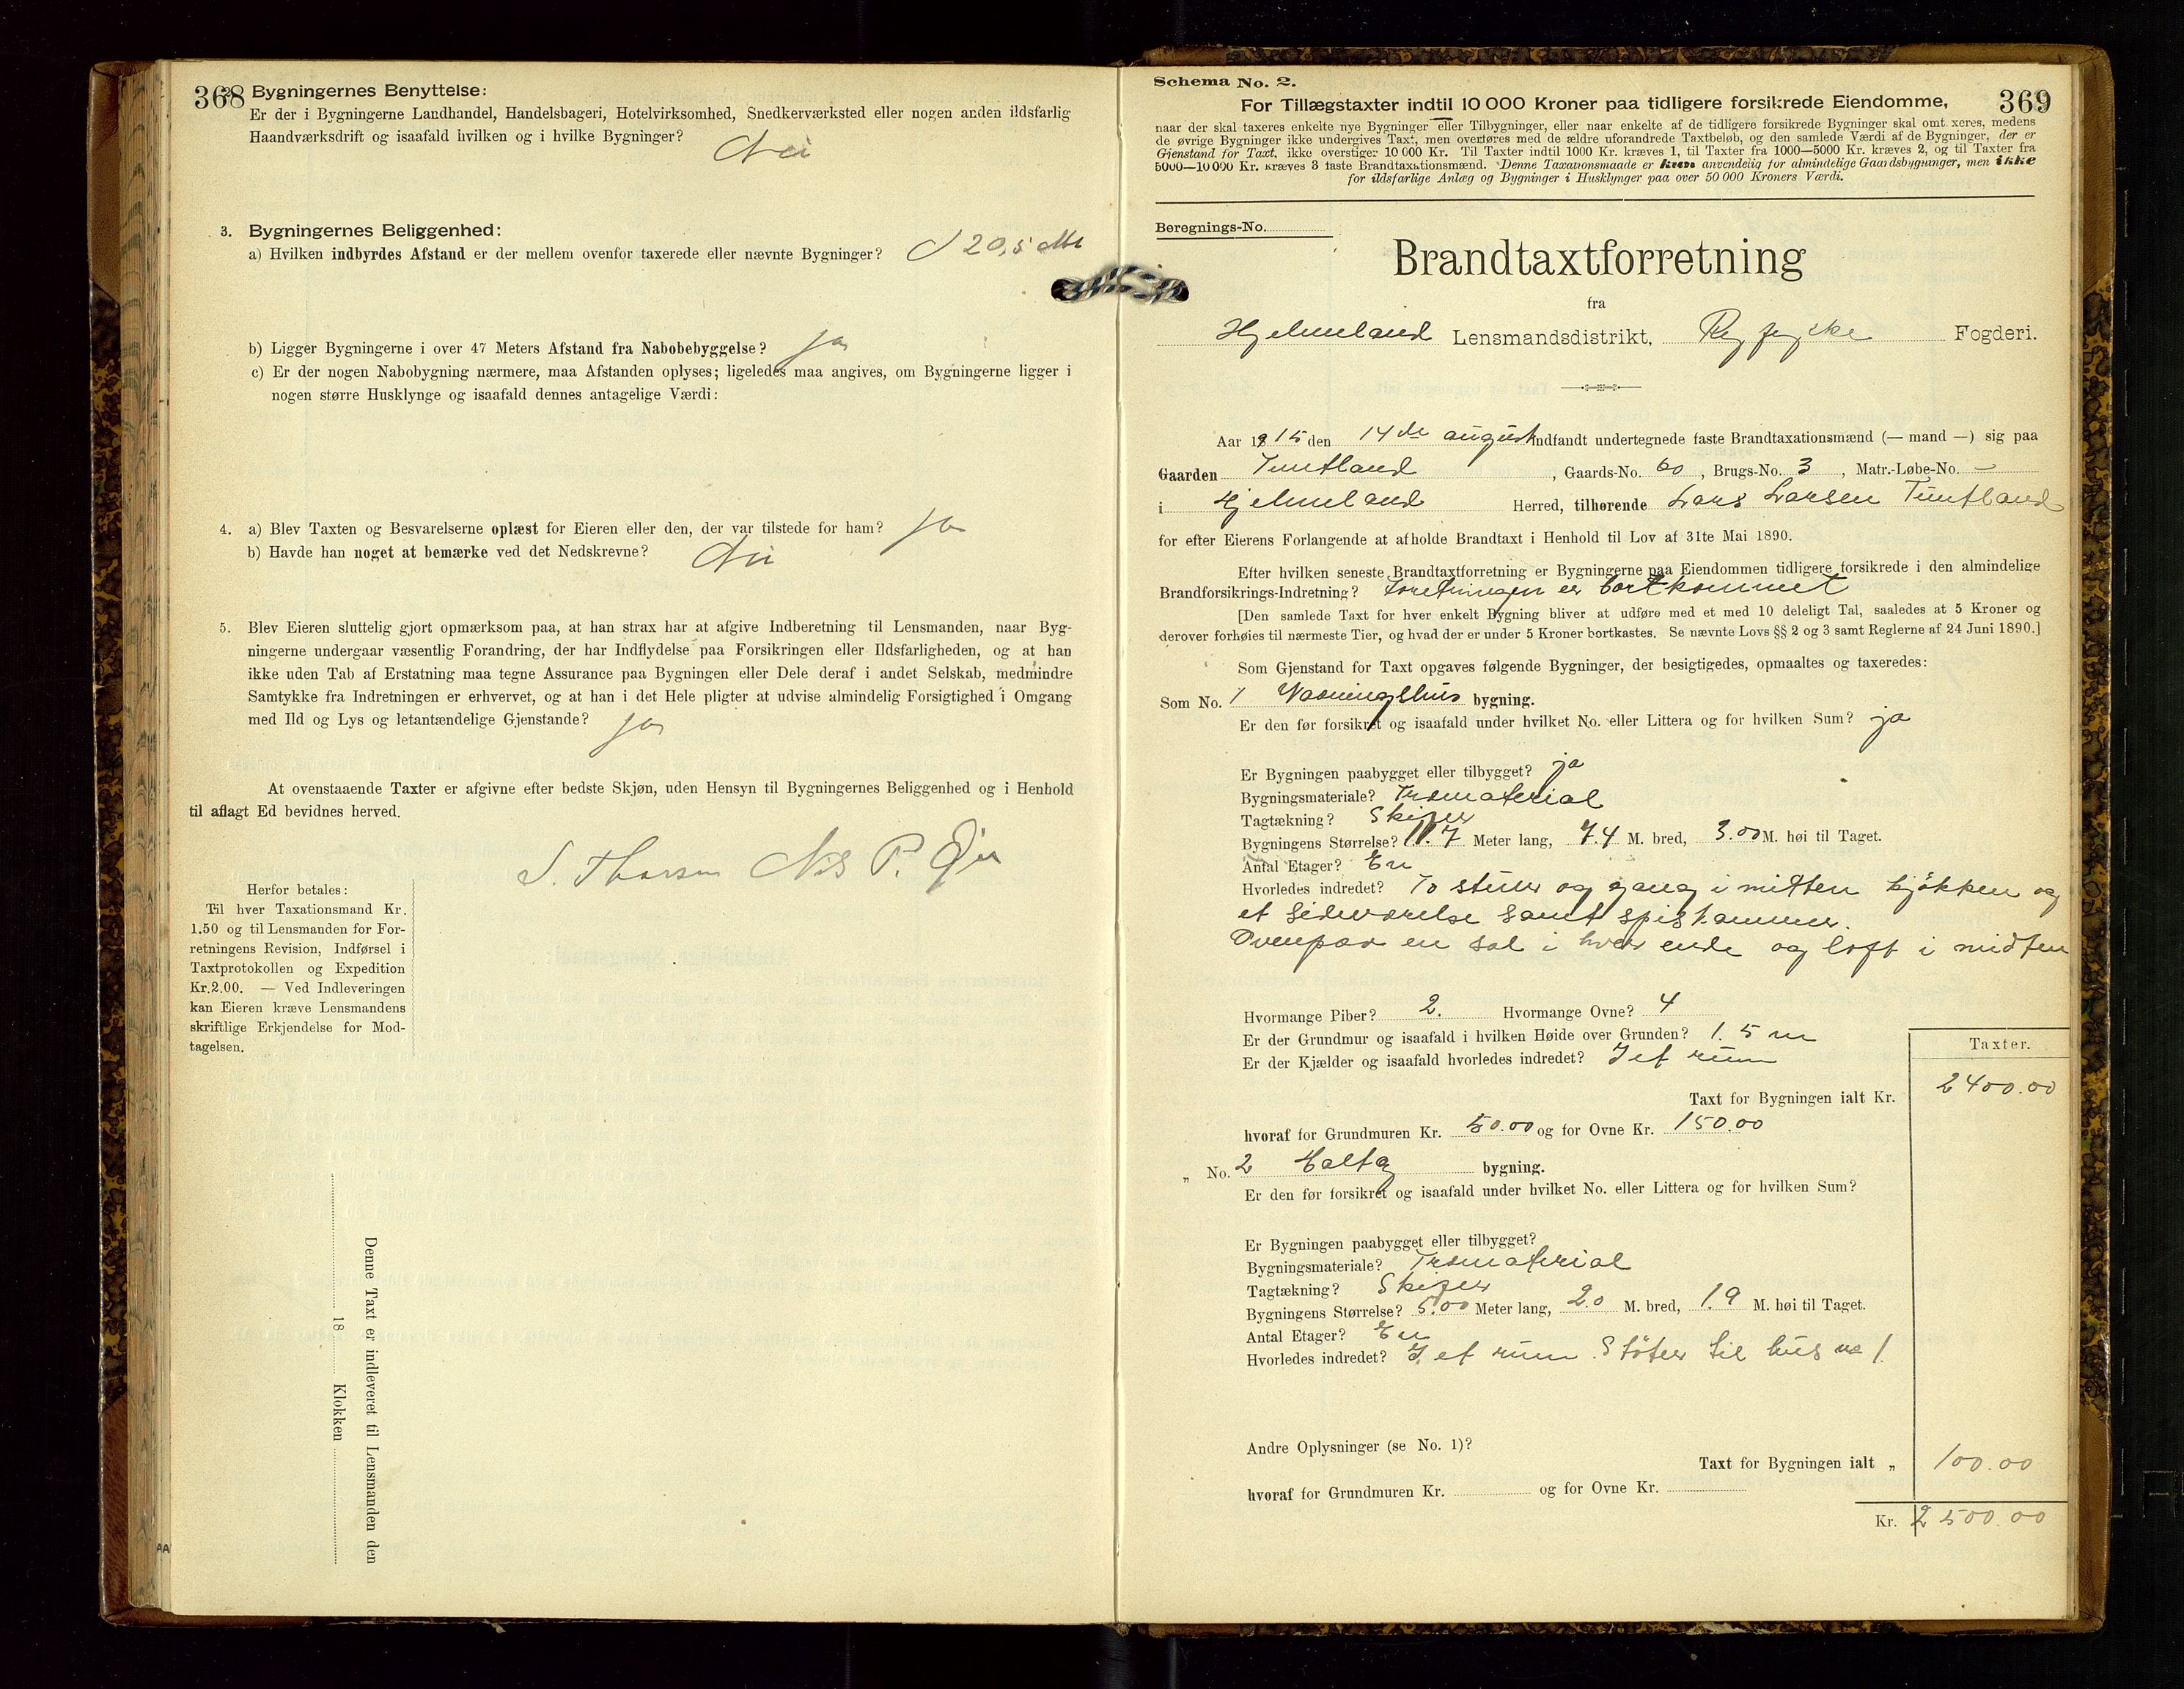 368
2. Bygningernes Benyttelse:
Er der i Bygningerne Landhandel, Handelsbageri, Hotelvirksomhed, Snedkerværksted eller nogen anden ildsfarlig
Haandværksdrift og isaafald hvilken og i hvilke Bygninger? Nei
3. Bygningernes Beliggenhed:
a) Hvilken indbyrdes Afstand er der mellem ovenfor taxerede eller nævnte Bygninger? 20,5 Mt
b) Ligger Bygningerne i over 47 Meters Afstand fra Nabobebyggelse? ja
c) Er der nogen Nabobygning nærmere, maa Afstanden oplyses; ligeledes maa angives, om Bygningerne ligger i
nogen større Husklynge og isaafald dennes antagelige Værdi:
4. a) Blev Taxten og Besvarelserne oplæst for Eieren eller den, der var tilstede for ham? ja
b) Havde han noget at bemærke ved det Nedskrevne? Nei
5. Blev Eieren sluttelig gjort opmærksom paa, at han strax har at afgive Indberetning til Lensmanden, naar Byg-
ningerne undergaar væsentlig Forandring, der har Indflydelse paa Forsikringen eller Ildsfarligheden, og at han
ikke uden Tab af Erstatning maa tegne Assurance paa Bygningen eller Dele deraf i andet Selskab, medmindre
Samtykke fra Indretningen er erhvervet, og at han i det Hele pligter at udvise almindelig Forsigtighed i Omgang
med Ild og Lys og letantændelige Gjenstande? ja
At ovenstaaende Taxter er afgivne efter bedste Skjøn, uden Hensyn til Bygningernes Beliggenhed og i Henhold
til aflagt Ed bevidnes herved.
S. Thorsen Nils P.
Herfor betales:
Til hver Taxationsmand Kr.
1.50 og til Lensmanden for For-
retningens Revision, Indførsel i
Taxtprotokollen og Expedition
Kr.2.00. — Ved Indleveringen
kan Eieren kræve Lensmandens
skriftlige Erkjendelse for Mod-
tagelsen.
Denne Taxt er indleveret til Lensmanden den
18 Klokken
Schema No. 2.
369
For Tillægstaxter indtil 10 000 Kroner paa tidligere forsikrede Eiendomme,
naar der skal taxeres enkelte nye Bygninger eller Tilbygninger, eller naar enkelte af de tidligere forsikrede Bygninger skal omt xeres, medens
de øvrige Bygninger ikke undergives Taxt, men overføres med de ældre uforandrede Taxtbeløb, og den samlede Værdi af de Bygninger, der er
Gjenstand for Taxt, ikke overstiger 10 000 Kr. Til Taxter indtil 1000 Kr. kræves 1, til Taxter fra 1000—5000 Kr. kræves 2, og til Taxter fra
5000—10 000 Kr. kræves 3 faste Brandtaxationsmænd. Denne Taxationsmaade er kun anvendelig for almindelige Gaardsbygninger, men ikke
for ildsfarlige Anlæg og Bygninger i Husklynger paa over 50 000 Kroners Værdi.
Beregnings-No.
Brandtaxtforretning
fra
Hjelmeland Lensmandsdistrikt, Ryfylke Fogderi.
Aar 1915 den 14de august indfandt undertegnede faste Brandtaxationsmænd (— mand —) sig paa
Gaarden Tuntland, Gaards-No. 60, Brugs-No. 3, Matr.-Løbe-No. -
i Hjelmeland Herred, tilhørende Lars Larsen Tuntland
for efter Eierens Forlangende at afholde Brandtaxt i Henhold til Lov af 31te Mai 1890.
Efter hvilken seneste Brandtaxtforretning er Bygningerne paa Eiendommen tidligere forsikrede i den almindelige
Brandforsikrings-Indretning? Foretningen er bortkommet
[Den samlede Taxt for hver enkelt Bygning bliver at udføre med et med 10 deleligt Tal, saaledes at 5 Kroner og
derover forhøies til nærmeste Tier, og hvad der er under 5 Kroner bortkastes. Se nævnte Lovs §§ 2 og 3 samt Reglerne af 24 Juni 1890.]
Som Gjenstand for Taxt opgaves følgende Bygninger, der besigtigedes, opmaaltes og taxeredes:
Som No. 1 Vaaningshus bygning.
Er den før forsikret og isaafald under hvilket No. eller Littera og for hvilken Sum? ja
Er Bygningen paabygget eller tilbygget? ja
Bygningsmateriale? Træmaterial
Tagtækning? Skifer
Bygningens Størrelse? 11.7 Meter lang, 7.4 M. bred, 3.00 M. høi til Taget.
Antal Etager? En
Hvorledes indredet? To stuer og gang i mitten kjökken og
et sideværelse samt spiskammer.
Ovenpaa en sal i hver ende og loft i midten
Hvormange Piber? 2. Hvormange Ovne? 4
Er der Grundmur og isaafald i hvilken Høide over Grunden? 1.5 m
Er der Kjælder og isaafald hvorledes indredet? I et rum
Taxter.
Taxt for Bygningen ialt Kr. 2400.00
hvoraf for Grundmuren Kr. 50.00 og for Ovne Kr. 150.00
„ No. 2 bygning.
Er den før forsikret og isaafald under hvilket No. eller Littera og for hvilken Sum?
Er Bygningen paabygget eller tilbygget?
Bygningsmateriale? Træmaterial
Tagtækning? Skifer
Bygningens Størrelse? 5.00 Meter lang, 2.0 M. bred, 1.9 M. høi til Taget.
Antal Etager? En
Hvorledes indredet? I et rum. Stöter til hus no 1.
Andre Oplysninger (se No. 1)?
Taxt for Bygningen ialt „ 100.00
hvoraf for Grundmuren Kr. og for Ovne Kr.
Kr. 2500.00